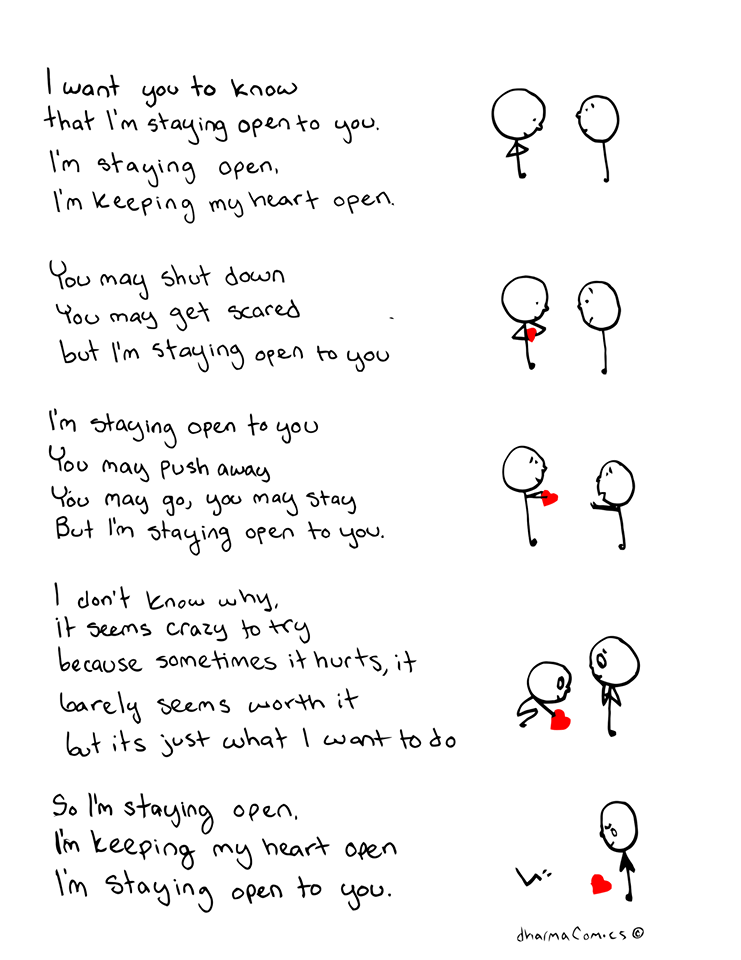 I want you to know
that I'm staying open to you.
I'm staying open,
I'm keeping my heart open.
You may shut down
You may get scared
but I'm staying open to you
I'm staying open to you
You may push away
You may go, you may stay
But I'm staying open to you.
I don't know why,
it seems crazy to try
because sometimes it hurts, it
barely seems worth it
but its just what I want to do
So I'm staying open,
I'm keeping my heart open
I'm staying open to you.
dharmaComics ©